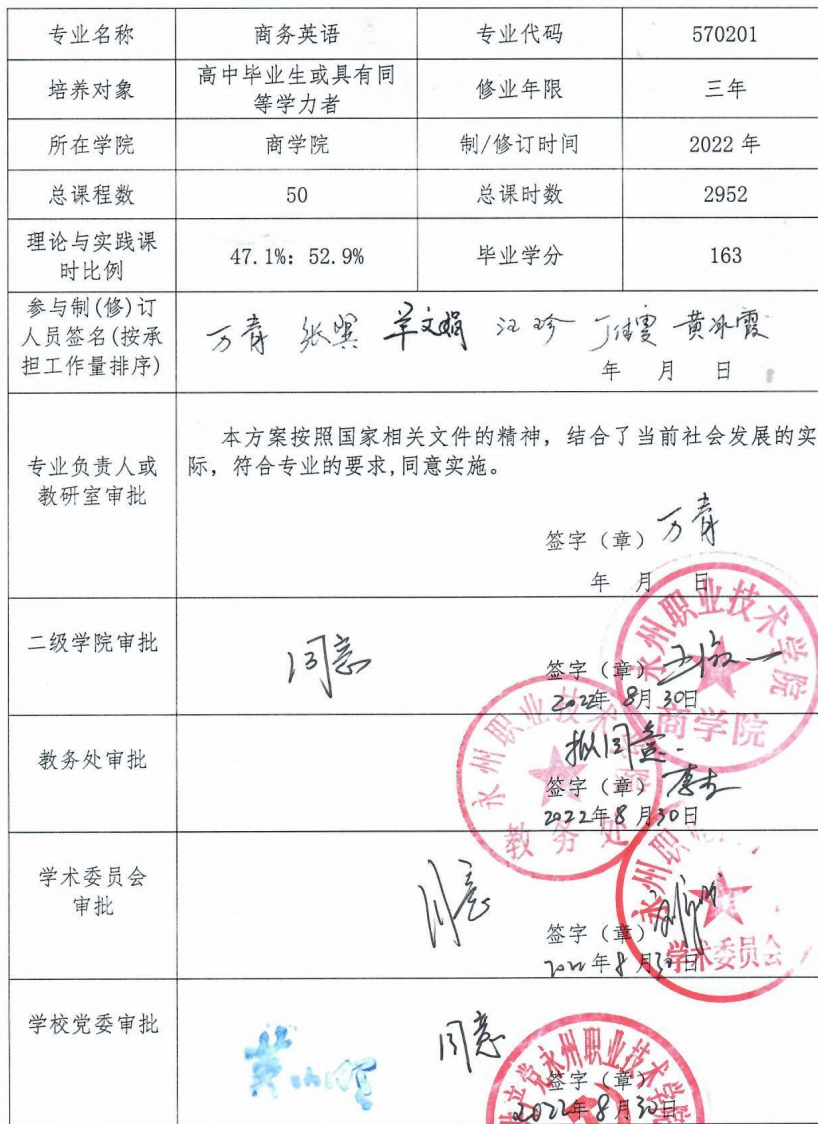 专业名称 商务英语 专业代码 570201
培养对象 高中毕业生或具有同
等学力者 修业年限 三年
所在学院 商学院 制/修订时间 2022 年
总课程数 50 总课时数 2952
理论与实践课
时比例 47.1%: 52.9% 毕业学分 163
参与制(修)订
人员签名(按承
担工作量排序)
万青 张巽 草文娟 汪珍 黄冰霞
年 月 日
专业负责人或
教研室审批
本方案按照国家相关文件的精神, 结合了当前社会发展的实
际, 符合专业的要求,同意实施。
签字 (章) 万青
年 月 日
二级学院审批
同意
签字 (章)
2022年 8月 30日
永州职业技术学院
商学院
教务处审批
拟同意
签字 (章)
2022年 8月30日
永州职业技术学院
教务处
学术委员会
审批
同意
签字 (章)
2022年 8月30日
永州职
学术委员会
学校党委审批
同意
签字 (章)
2022年8月30日
产党永州职业技术学院